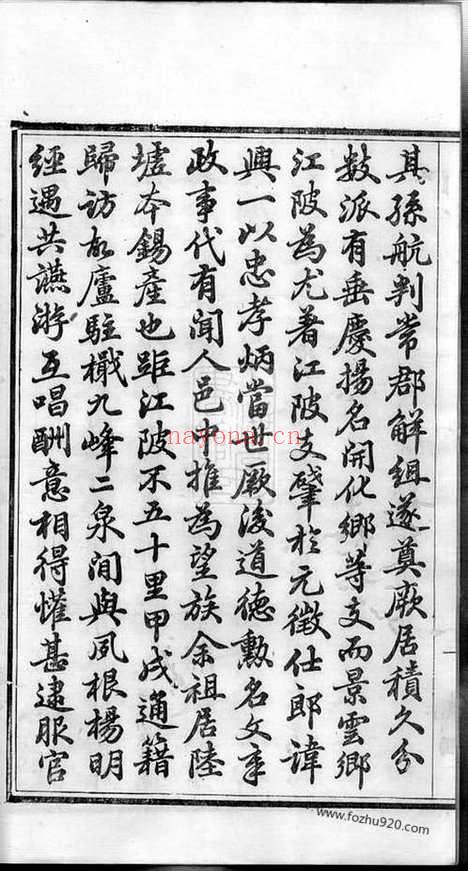 其孫航判常郡解組遂奠厥居積久分
數派有垂慶揚名開化鄉等支而景雲鄉
江陂為尤著江陂支肇於元徵仕郎諱
興一以忠孝炳當世厥後道德勳名文章
政事代有聞人邑中推為望族余祖居陸
墟本錫產也距江陂不五十里甲戌通籍
歸訪故廬駐檝九峰二泉間與夙根楊明
經遇共讌游互唱酬意相得懽甚逮服官
nayona.cn
www.fozhu920.com